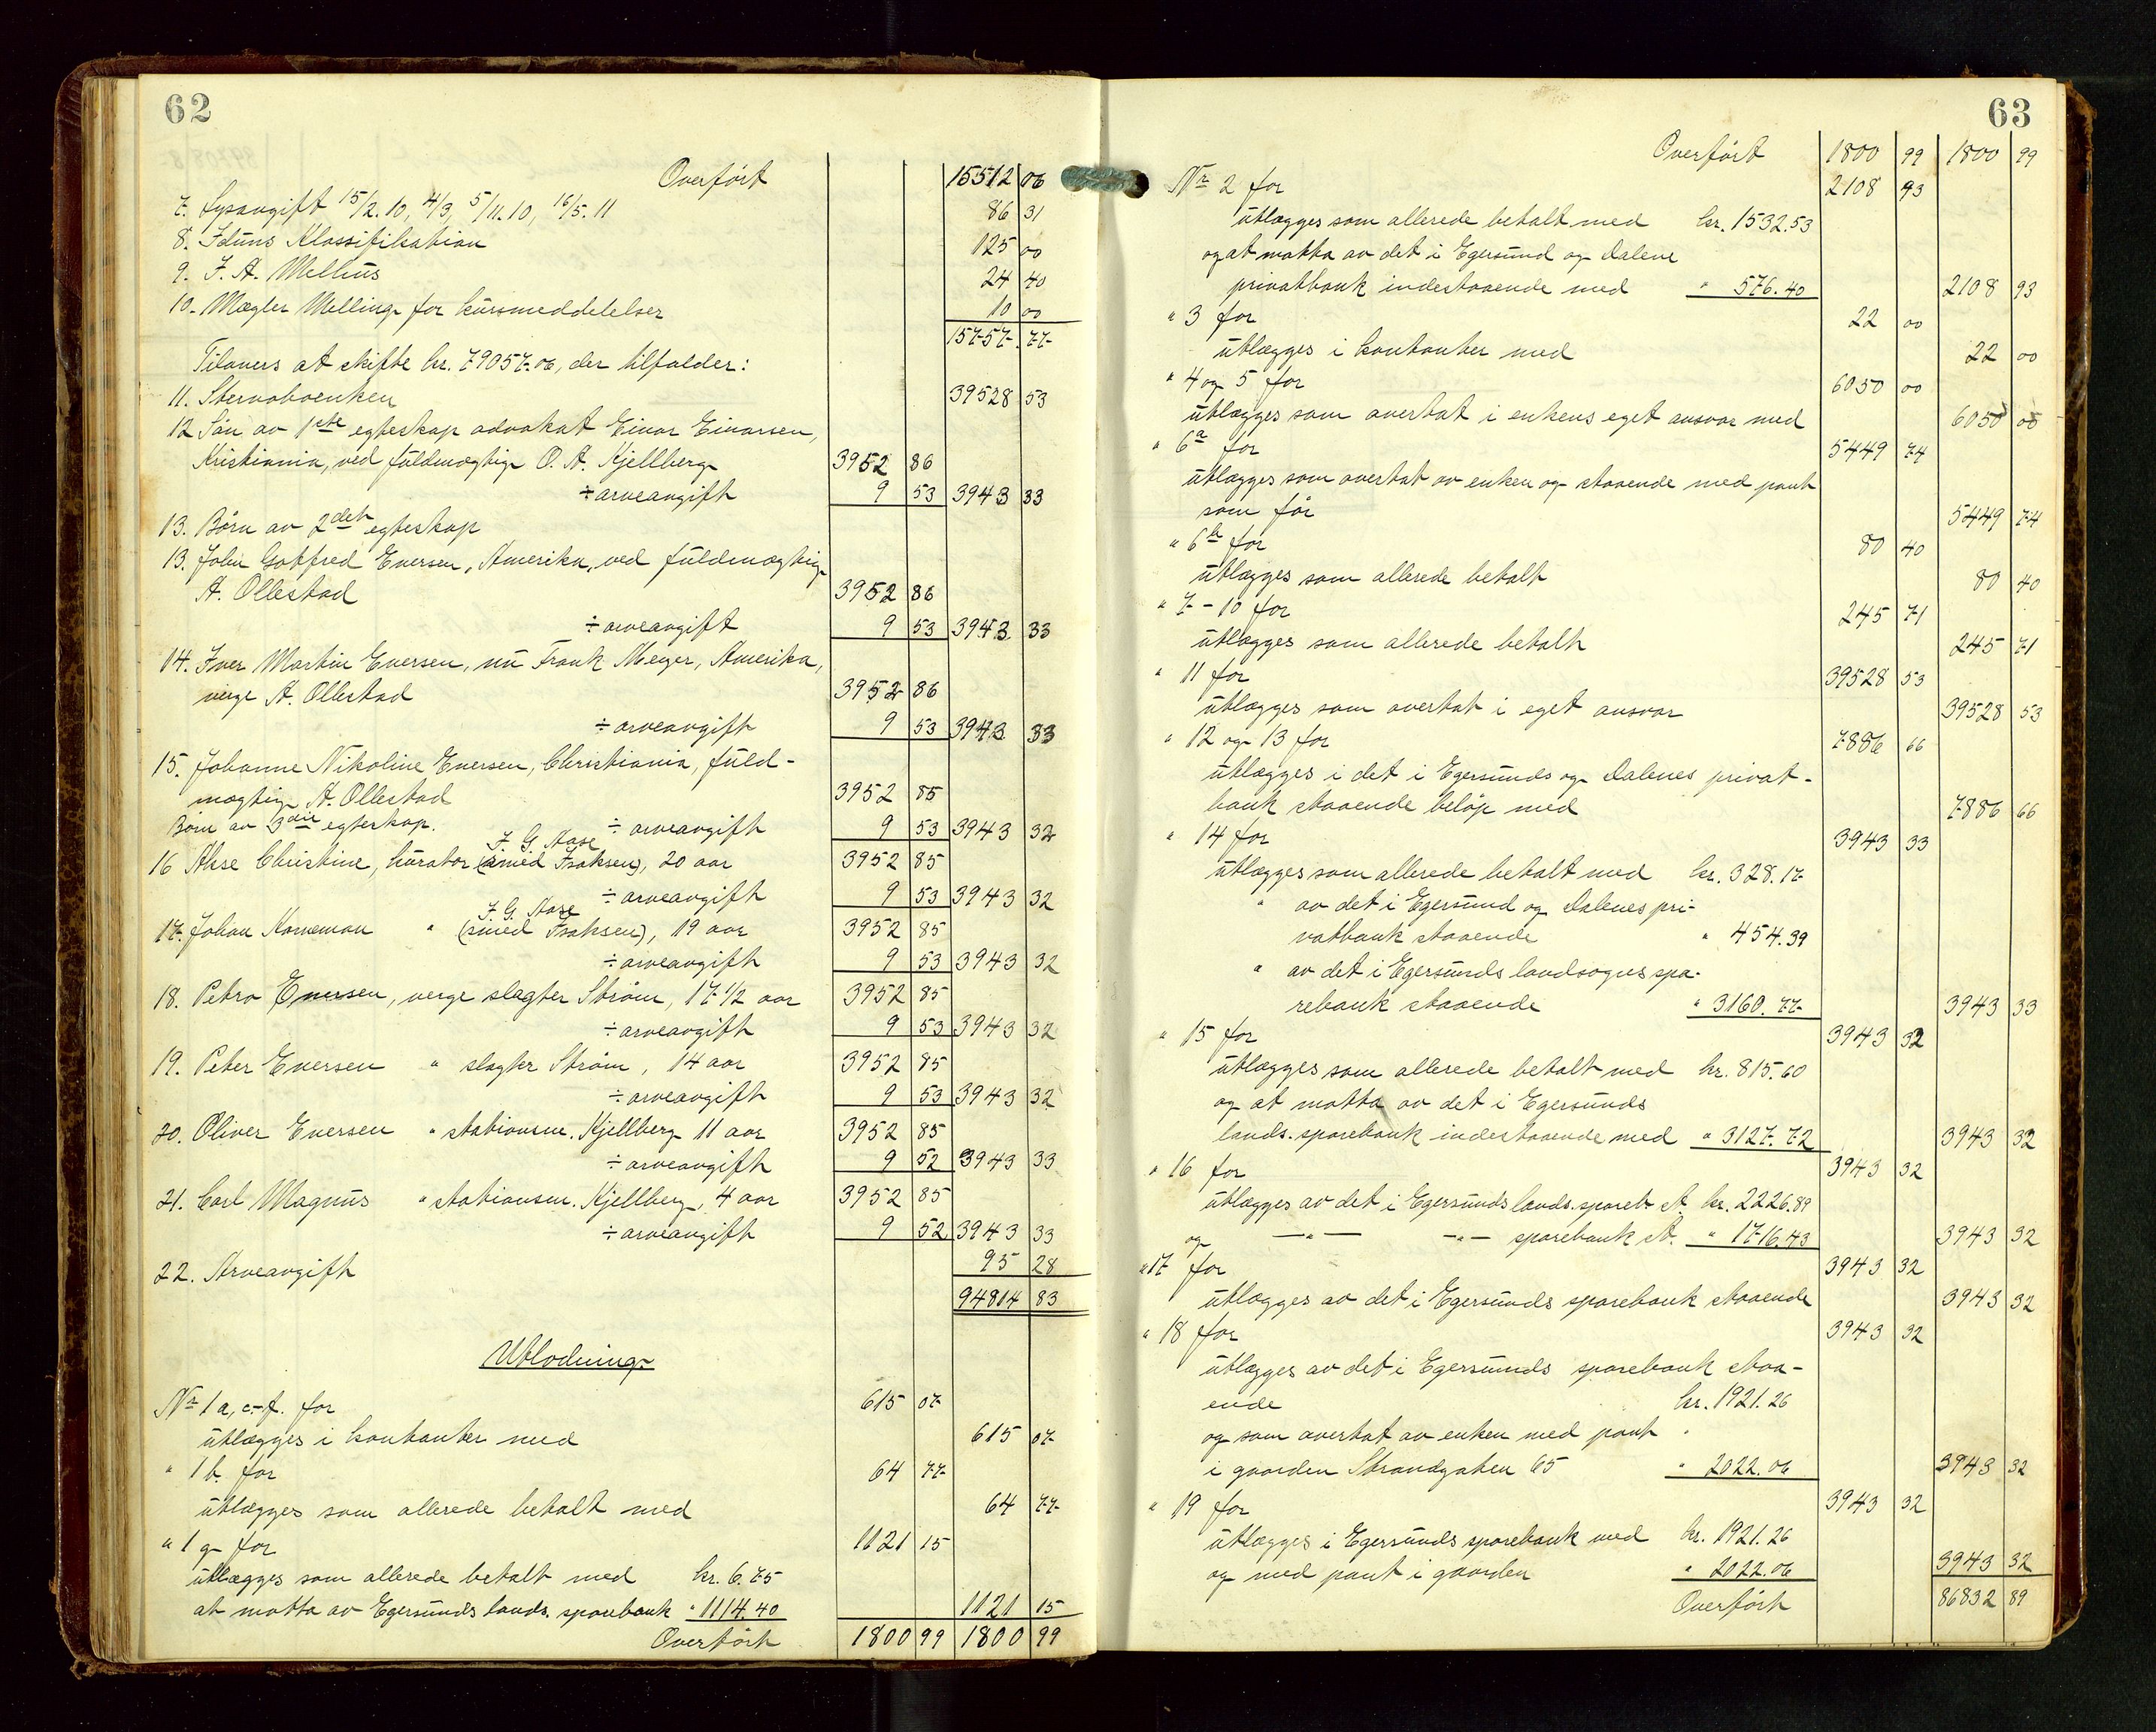 62
Overført 15512 06
7. Lysavgift 15/2.10, 4/3, 5/11.10, 16/5.11 86 31
8. Iduns Klassifikation 125 00
9. J. A. Mellius 24 40
10. Mægler Melling for kursmeddelelser 10 00
15757. 77
Tilovers at skifte kr. 79057.06, der tilfalder:
11. Stervboenken 39528 53
12 Søn av 1ste egteskap advokat Einar Einarsen,
Kristiania, ved fuldmægtig O. A. Kjellberg 3952 86
÷ arveavgift 9 53 3943 33
13. Børn av 2det egteskap
13. John Gotfred Eversen, Amerika, ved fuldmægtig
A. Ollestad 3952 86
÷ arveavgift 9 53 3943 33
14. Iver Martin Eversen, nu Frank Meyer, Amerika,
verge A. Ollestad 3952 86
÷ arveavgift 9 53 3943 33
15. Johanne Nikoline Eversen, Christiania, fuld-
mægtig A. Ollestad 3952 85
Børn av 3die egteskap. ÷ arveavgift 9 53 3943 32
J. G. Aase
16 Åse Christine, kurator (smed Isaksen), 20 aar 3952 85
÷ arveavgift 9 53 3943 32
J. G. Aase
17. Johan Korneman " (smed Isaksen), 19 aar 3952 85
÷ arveavgift 9 53 3943 32
18. Petra Eversen, verge slagter Strøm, 17 1/2 aar 3952 85
÷ arveavgift 9 53 3943 32
19. Peter Eversen " slagter Strøm, 14 aar 3952 85
÷ arveavgift 9 53 3943 32
20. Oliver Eversen " stationsm. Kjellberg 11 aar 3952 85
÷ arveavgift 9 52 3943 33
21. Carl Magnus " stationsm. Kjellberg, 4 aar 3952 85
÷ arveavgift 9 52 3943 33
22. Arveavgift 95 28
94814 83
Utlodning
Nr 1 a, c-f. for 615 07
utlægges i kontanter med 615 07
" 1 b. for 64 77
utlægges som allerede betalt med 64 77
" 1 g for 1121 15
utlægges som allerede betalt med kr. 6.75
at motta av Egersunds lands. sparebank " 1114.40 1121 15
Overført 1800 99 1800 99
63
Overført 1800 99 1800 99
Nr 2 for 2108 93
utlægges som allerede betalt med kr. 1532.53
og at motta av det i Egersund og Dalene
privatbank indestaaende med " 576.40 2108 93
" 3 for 22 00
utlægges i kontanter med 22 00
" 4 og 5 for 6050 00
utlægges som overtat i enkens eget ansvar med 6050 00
" 6a for 5449 74
utlægges som overtat av enken og staaende med pant
som før 5449 74
" 6b for 80 40
utlægges som allerede betalt 80 40
" 7-10 for 245 71
utlægges som allerede betalt 245 71
" 11 for 39528 53
utlægges som overtat i eget ansvar 39528 53
" 12 og 13 for 7886 66
utlægges i det i Egersunds og Dalenes privat-
bank staaende beløp med 7886 66
" 14 for 3943 33
utlægges som allerede betalt med kr. 328.17
" av det i Egersund og Dalenes pri-
vatbank staaende " 454.39
" av det i Egersunds landsogns spa-
rebank staaende " 3160.77 3943 33
" 15 for 3943 32
utlægges som allerede betalt med kr. 815.60
og at motta av det i Egersunds
lands. sparebank indestaaende med " 3127.72 3943 32
" 16 for 3943 32
utlægges av det i Egersunds lands. spareb A. kr. 2226.89
og —"— —"— sparebank A. " 1716.43 3943 32
" 17 for 3943 32
utlægges av det i Egersunds sparebank staaende 3943 32
" 18 for 3943 32
utlægges av det i Egersunds sparebank staa-
ende kr. 1921.26
og som overtat av enken med pant
i gaarden Strandgaten 65 " 2022.06 3943 32
" 19 for 3943 32
utlægges i Egersunds sparebank med kr. 1921.26
og med pant i gaarden " 2022.06 3943 32
Overført 86832 89